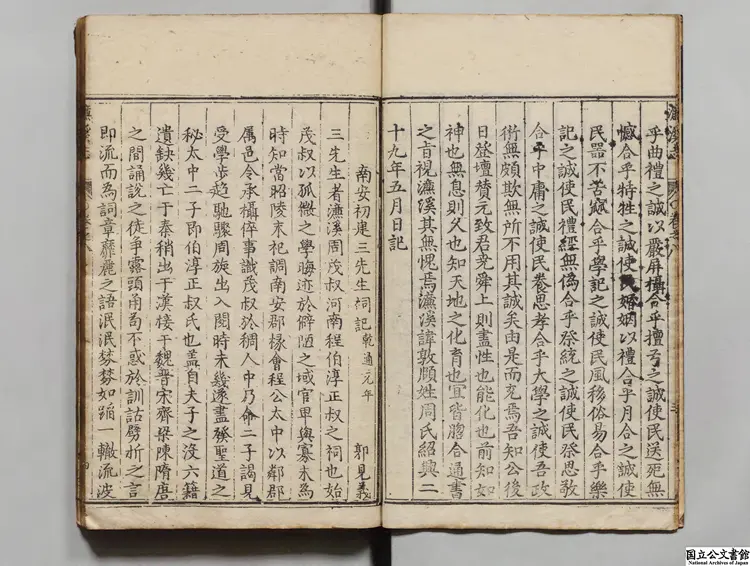 乎曲禮之誠以嚴屏攝合乎檀弓之誠使民送死無
憾合乎特牲之誠使民婚姻以禮合乎月令之誠使
民器不苦窳合乎學記之誠使民風移俗易合乎樂
記之誠使民禮經無偽合乎祭統之誠使民祭思敬
合乎中庸之誠使民養思孝合乎大學之誠使吾政
術無頗欺無所不用其誠矣由是而充焉吾知公後
日登壇贊元致君堯舜上則盡性也能化也前知如
神也無息則久也知天地之化育也宜皆脗合通書
之旨視濂溪其無愧焉濂溪諱敦頤姓周氏紹興二
十九年五月日記
南安初建三先生祠記 乾道元年 郭見義
三先生者濂溪周茂叔河南程伯淳正叔之祠也始
茂叔以孤微之學晦迹於僻陋之域官卑與寡未為
時知當昭陵末祀調南安郡掾會程公太中以鄰郡
属邑令承攝倅事識茂叔於稠人中乃命二子謁見
受學步趋馳驟周旋出入閱時未幾遂盡發聖道之
秘太中二子即伯淳正叔氏也盖自夫子之沒六籍
遺缺幾亡于秦稍出于漢棲于魏晋宋齊梁陳隋唐
之間誦說之徒爭露頭角苟不惑於訓詁劈析之言
即流而為詞章靡麗之語泯泯棼棼如蹈一轍流波
国立公文書館
National Archives of Japan